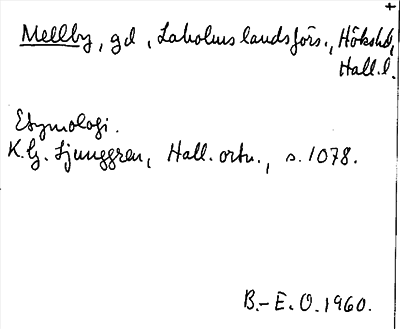 Mellby, gd, Laholms landsförs., Hökshd,
Hall. l.
Etymologi.
K.G. Ljunggren, Hall. ortn., s. 1078.
B.-E. O. 1960.